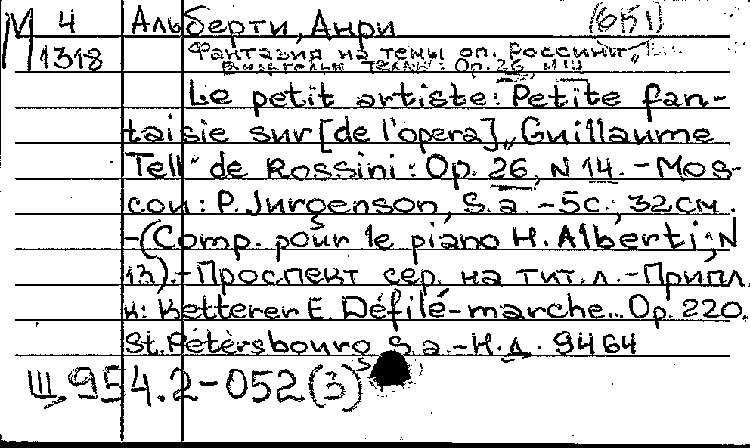 М 4 Альберти, Анри (651)
1318 Фантазия на темы оп. Россини
"Вильгельм Телль": Op. 26, N 14
Le petit artiste: Petite fan-
taisie sur [de l'opera] „Guillaume
Tell" de Rossini: Op. 26, N 14. - Mos-
cou: P. Jurgenson, S. a. - 5с.; 32см.
- (Comp. pour le piano H. Alberti; N
13). - Проспект сер. на тит. л. - Припл.
к: Ketterer E. Défilé-marche... Op. 220.
St. Pétersbourg S. a. - Н. Д. 9464
Ш 954.2-052(3)